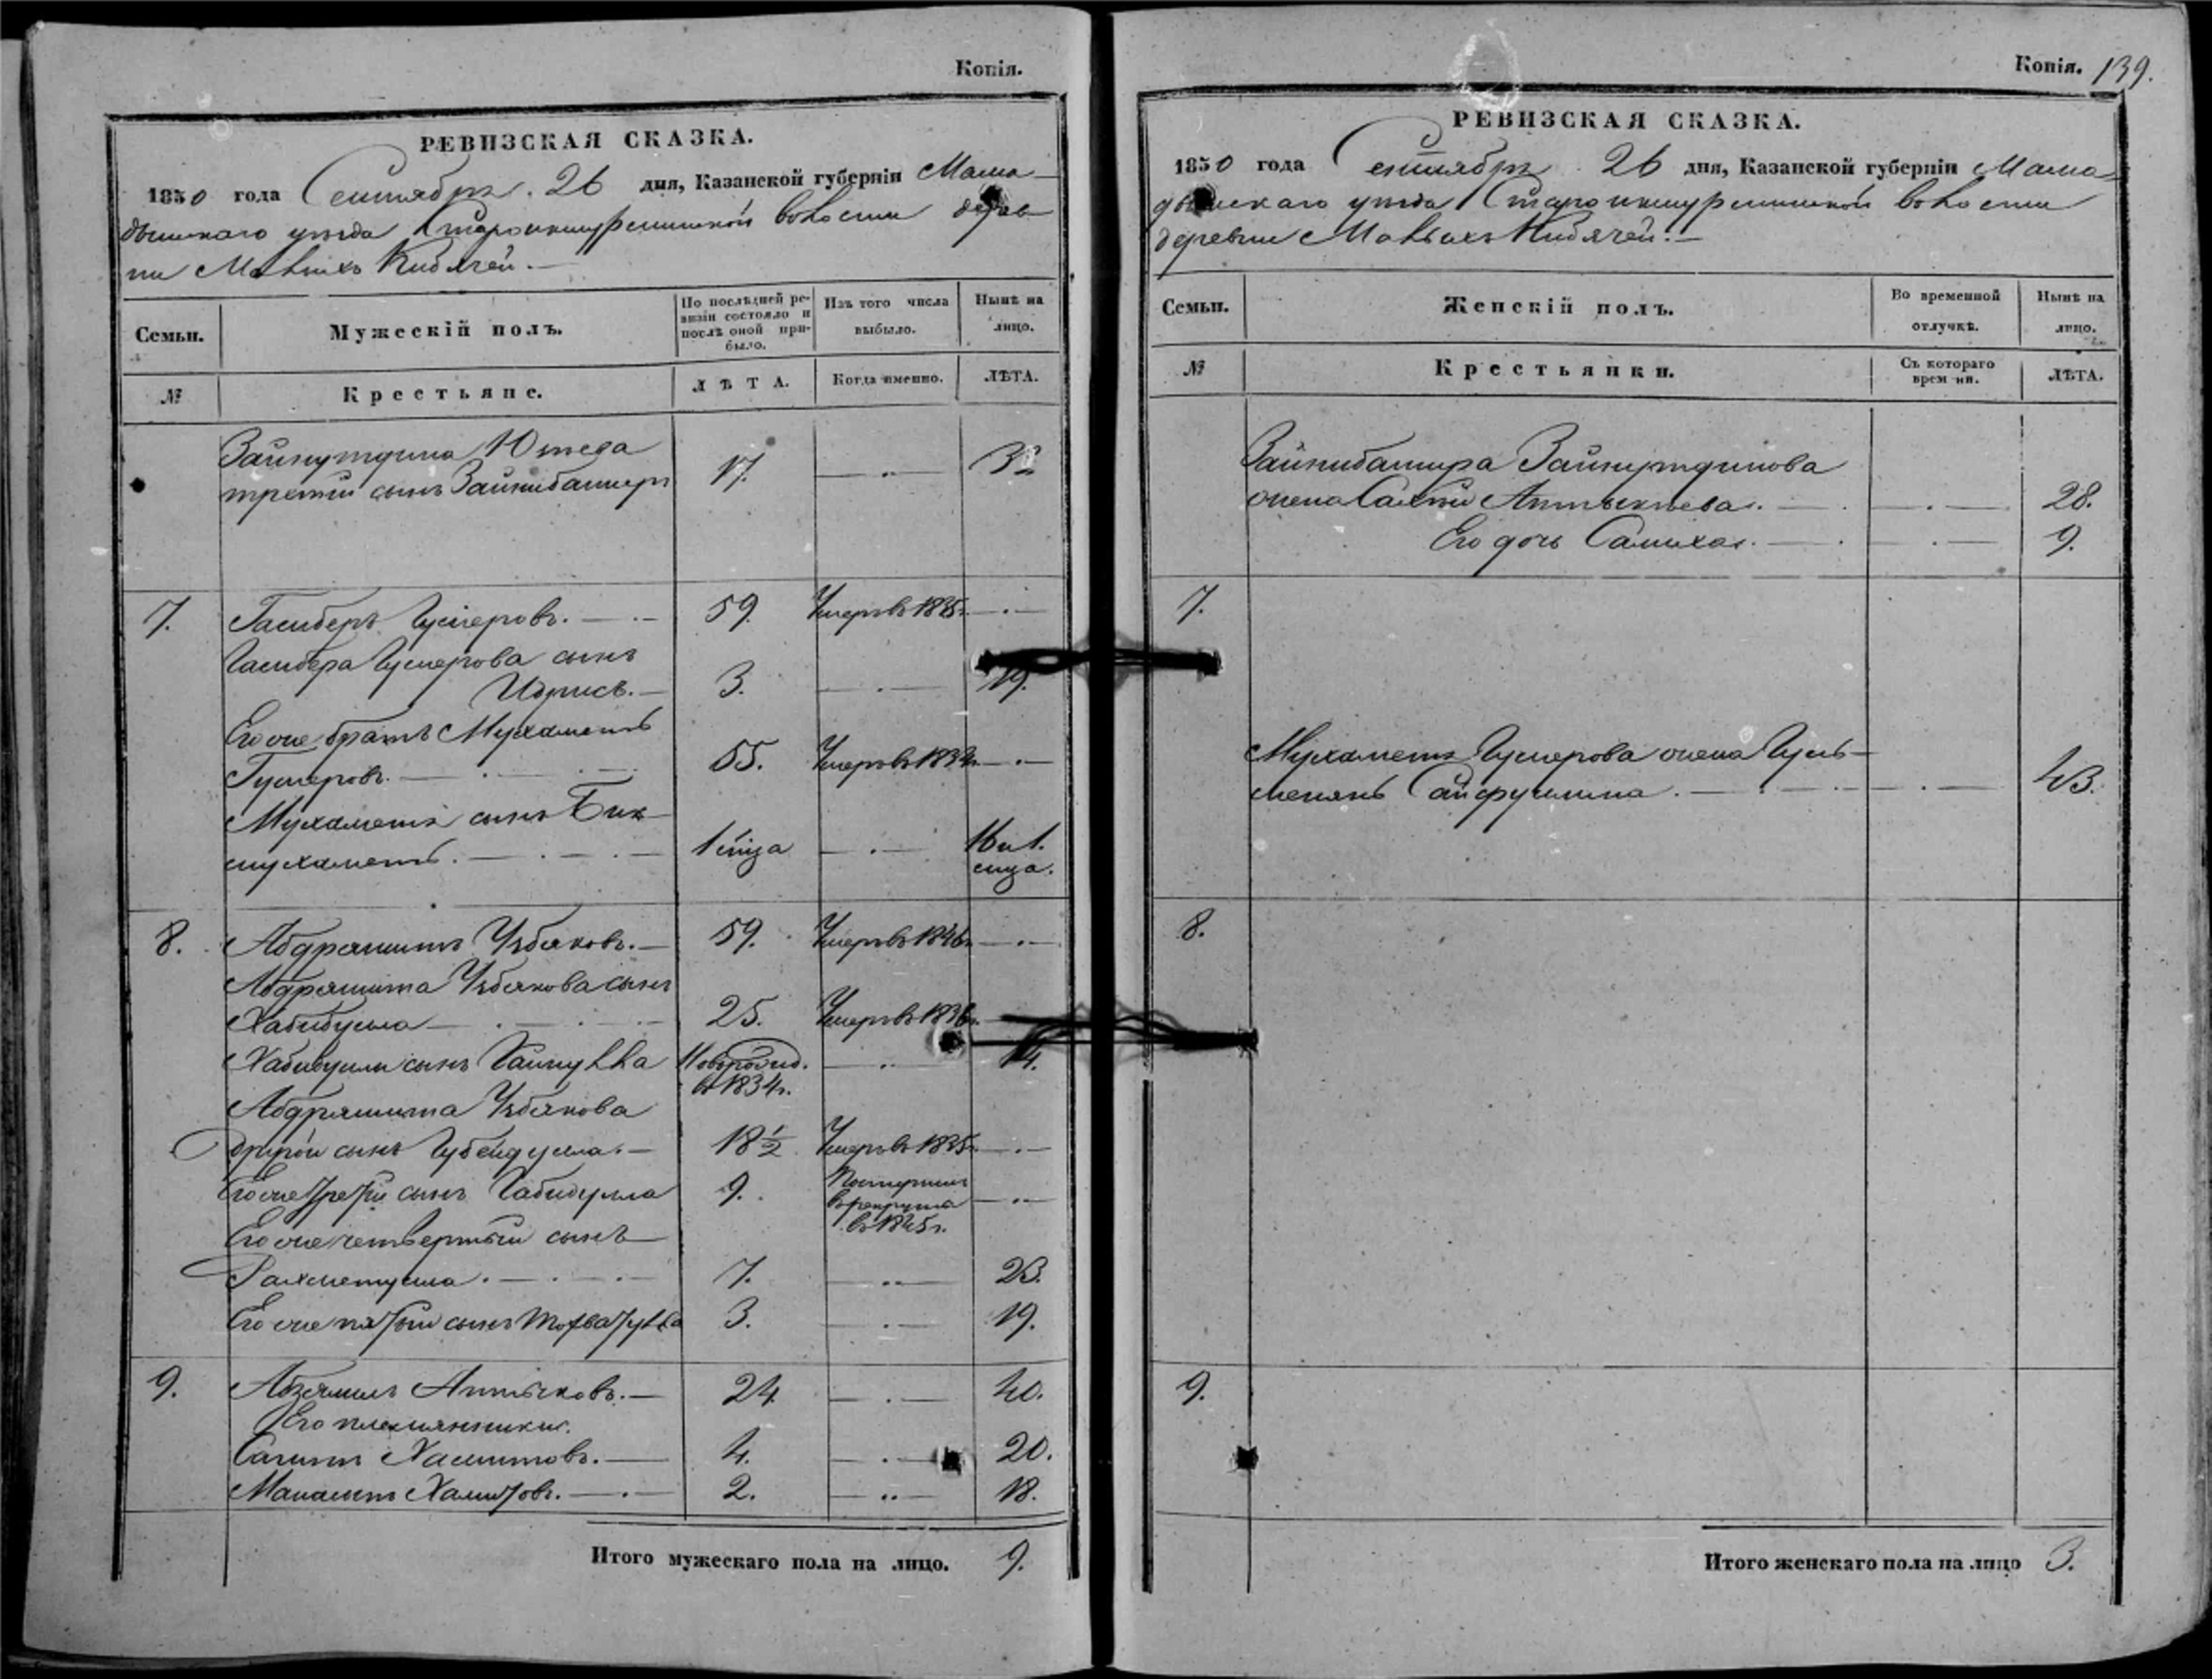 Копія.
РЕВИЗСКАЯ СКАЗКА.
1850 года Сентября 26 дня, Казанской губерніи Мама-
дышскаго уѣзда Староикшурминской волости дерев-
ни Малыхъ Кибячей.
Семьи.
Мужескій полъ.
По послѣдней ре-
визіи состояло и
послѣ оной при-
было.
Изъ того числа
выбыло.
Нынѣ на
лицо.
№
Крестьяне.
ЛѢТА.
Когда именно.
ЛѢТА.
Зайнутдина Ютеева
третій сынъ Зайнибаширъ 17.
7. Гасиберъ Гумеровъ. 59. Умеръ въ 1835г.
Гасибера Гумерова сынъ
Идрисъ. 3. 19.
Его же братъ Мухаметъ
Гумеровъ. 55. Умеръ въ
Мухаметя сынъ Бик-
мухаметъ. 1 мца 16 и 1.
мца.
8. Абдряшитъ Узбяковъ. 59. Умеръ въ 1846г.
Абдряшита Узбякова сынъ
Хабибулла 25. Умеръ въ 1836г.
Хабибуллы сынъ Гайнулла Новорожд. 14.
въ 1834г.
Абдряшита Узбякова
другой сынъ Губейдулла. 18½ Умеръ въ 1835г.
Его же третій сынъ Габидулла 9. Поступилъ
в рекруты
въ 1845г.
Его же четвертый сынъ
Рахметулла. 7. 23.
Его же пятый сынъ 3. 19.
9. Абзямилъ Аптыковъ. 24. 40.
Его племянники.
Сагитъ Хамитовъ. 4. 20.
Манасыпъ Хамитовъ. 2. 18.
Итого мужескаго пола на лицо. 9.
Копія. 139.
РЕВИЗСКАЯ СКАЗКА.
1850 года Сентября 26 дня, Казанской губерніи Мама-
дышскаго уѣзда Староикшурминской волости
деревни Малыхъ Кибячей.
Семьи.
Женскій полъ.
Во временной
отлучкѣ.
Нынѣ на
лицо.
№
Крестьянки.
Съ котораго
времени.
ЛѢТА.
Зайнибашира Зайнутдинова
жена Аптыкеева. 28.
Его дочь Салиха. 9.
7.
Мухаметя Гумерова жена Гуль-
Сайфуллина. 43.
8.
9.
Итого женскаго пола на лицо 3.